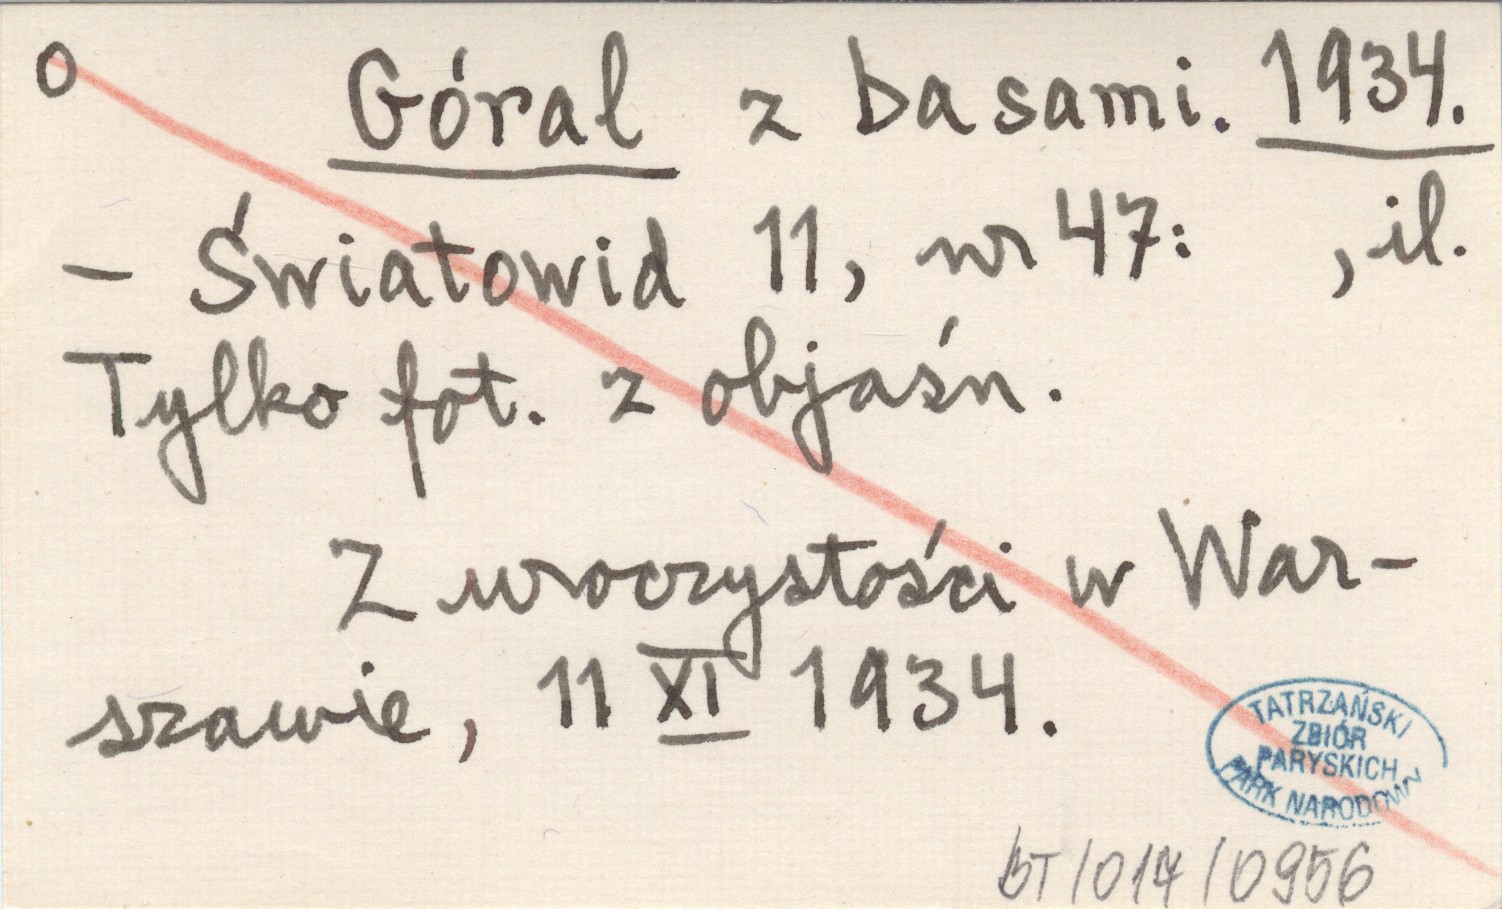 O Góral z basami. 1934.
– Światowid 11, nr 47: , il.
Tylko fot. z objaśn.
Z uroczystości w War-
szawie, 11 XI 1934.
TATRZAŃSKI
ZBIÓR
PARYSKICH
PARK NARODOWY
BT/014/0956